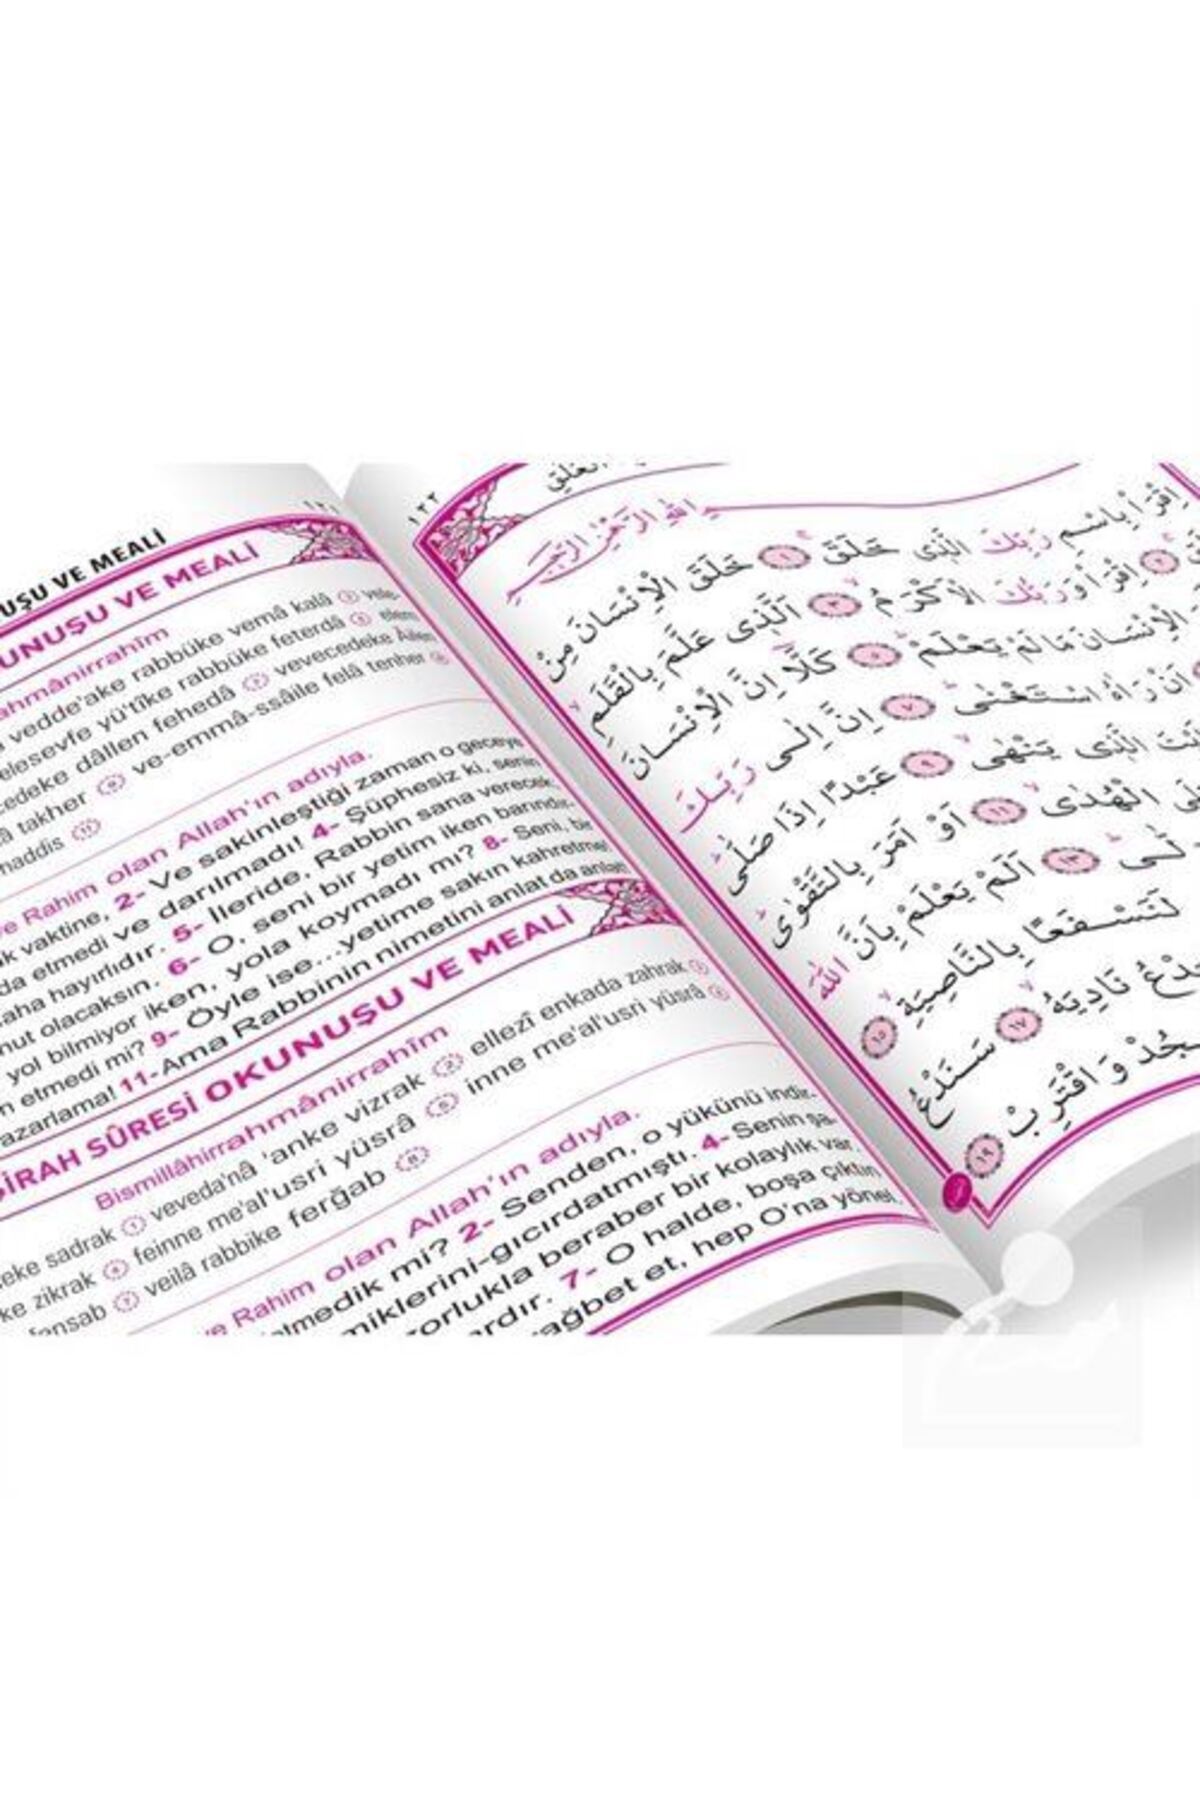 ١٢١
UŞU VE MEALİ
UNUŞU VE MEALİ
ahmânirrahîm
vedde'ake rabbüke vemâ kalâ ٣ vele-
elesevfe yü'tîke rabbüke feterdâ ٥ elem
cedeke dâllen fehedâ ٧ vevecedeke Âilen
â takher ٩ ve-emmâ-ssâile felâ tenher
haddis ١١
ve Rahim olan Allah'ın adıyla.
k vaktine, 2- Ve sakinleştiği zaman o geceye
da etmedi ve darılmadı! 4- Şüphesiz ki, senin
aha hayırlıdır. 5- İleride, Rabbin sana verecek
nut olacaksın. 6- O, seni bir yetim iken barındır-
yol bilmiyor iken, yola koymadı mı? 8- Seni, bir
n etmedi mi? 9- Öyle ise...yetime sakın kahretme!
azarlama! 11- Ama Rabbinin nimetini anlat da anlat
ŞİRAH SÛRESİ OKUNUŞU VE MEALİ
Bismillâhirrahmânirrahîm
eke sadrak ١ veveda'nâ 'anke vizrak ٢ ellezî enkada zahrak ٣
ke zikrak ٤ feinne me'al'usri yüsrâ ٥ inne me'al'usri yüsrâ ٦
fensab ٧ veilâ rabbike ferğab ٨
ve Rahim olan Allah'ın adıyla.
tmedik mi? 2- Senden, o yükünü indir-
miklerini-gıcırdatmıştı. 4- Senin şa-
zorlukla beraber bir kolaylık var.
ardır. 7- O halde, boşa çıktın
ağbet et, hep O'na yönel.
١٢٢
الْعَلَقِ
اللّٰهِ الرَّحْمٰنِ الرَّحِيمِ
اِقْرَأْ بِاسْمِ رَبِّكَ الَّذِى خَلَقَ ١ خَلَقَ الْاِنْسَانَ مِنْ
٢ اِقْرَأْ وَرَبُّكَ الْاَكْرَمُ ٣ اَلَّذِى عَلَّمَ بِالْقَلَمِ
الْاِنْسَانَ مَا لَمْ يَعْلَمْ ٥ كَلَّا اِنَّ الْاِنْسَانَ
اَنْ رَاٰهُ اسْتَغْنٰى ٧ اِنَّ اِلٰى رَبِّكَ
الَّذِى يَنْهٰى ٩ عَبْدًا اِذَا صَلّٰى
الْهُدٰى ١١ اَوْ اَمَرَ بِالتَّقْوٰى
لّٰى ١٣ اَلَمْ يَعْلَمْ بِاَنَّ اللّٰهَ
لَنَسْفَعًا بِالنَّاصِيَةِ ١٥
نَادِيَهُ ١٧ سَنَدْعُ
وَاقْتَرِبْ ١٩